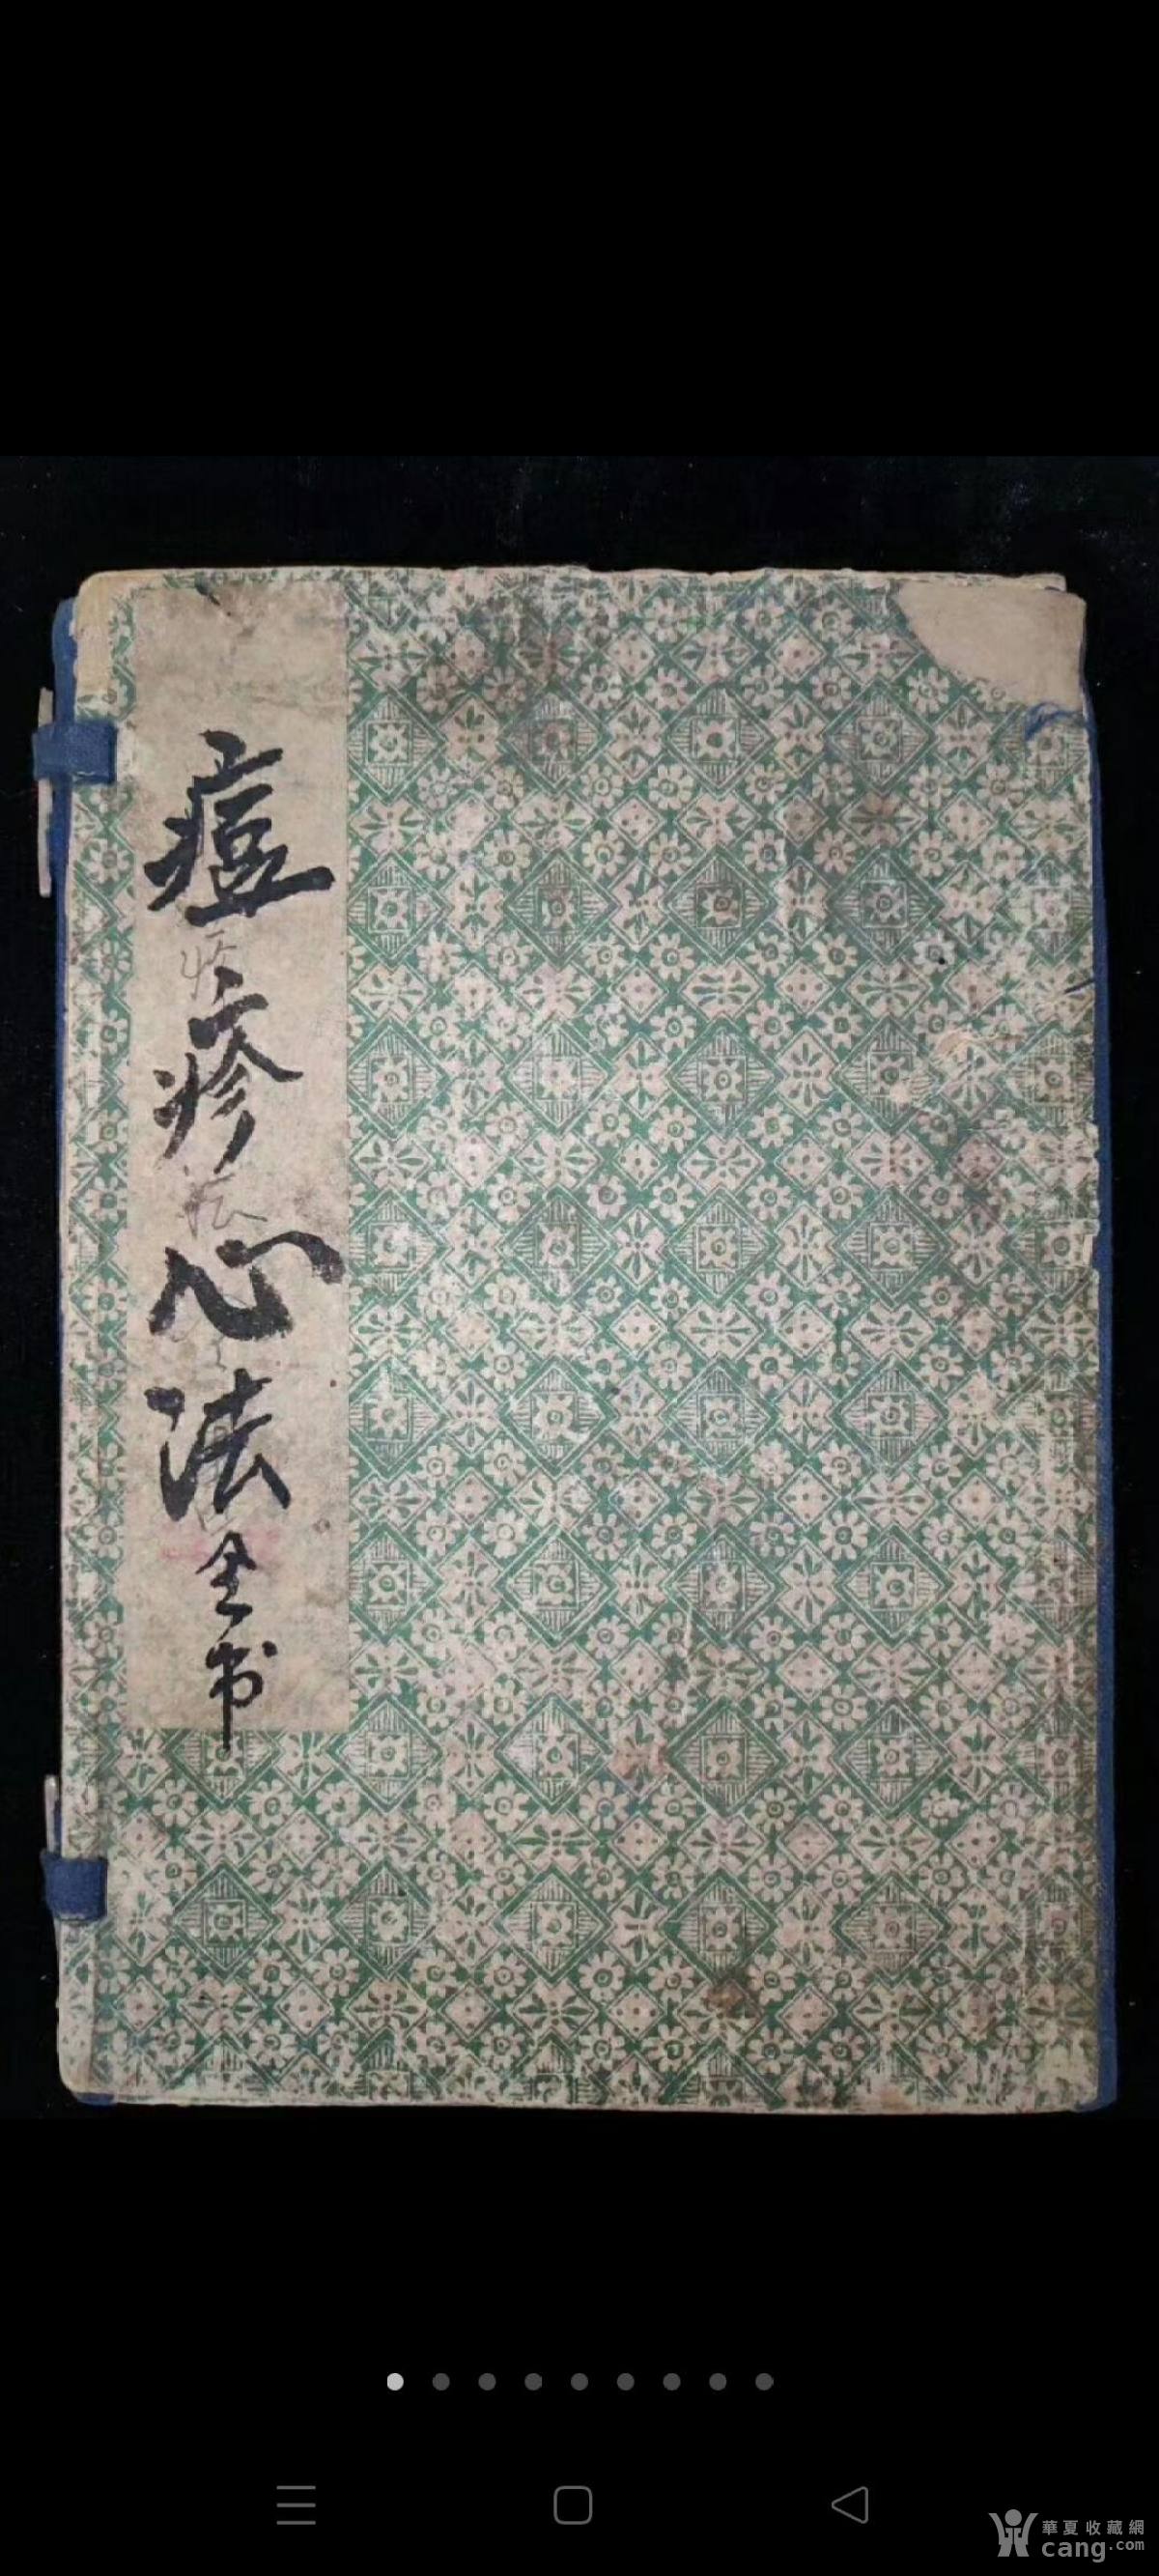 痘疹心法全书
華夏收藏網
cang.com